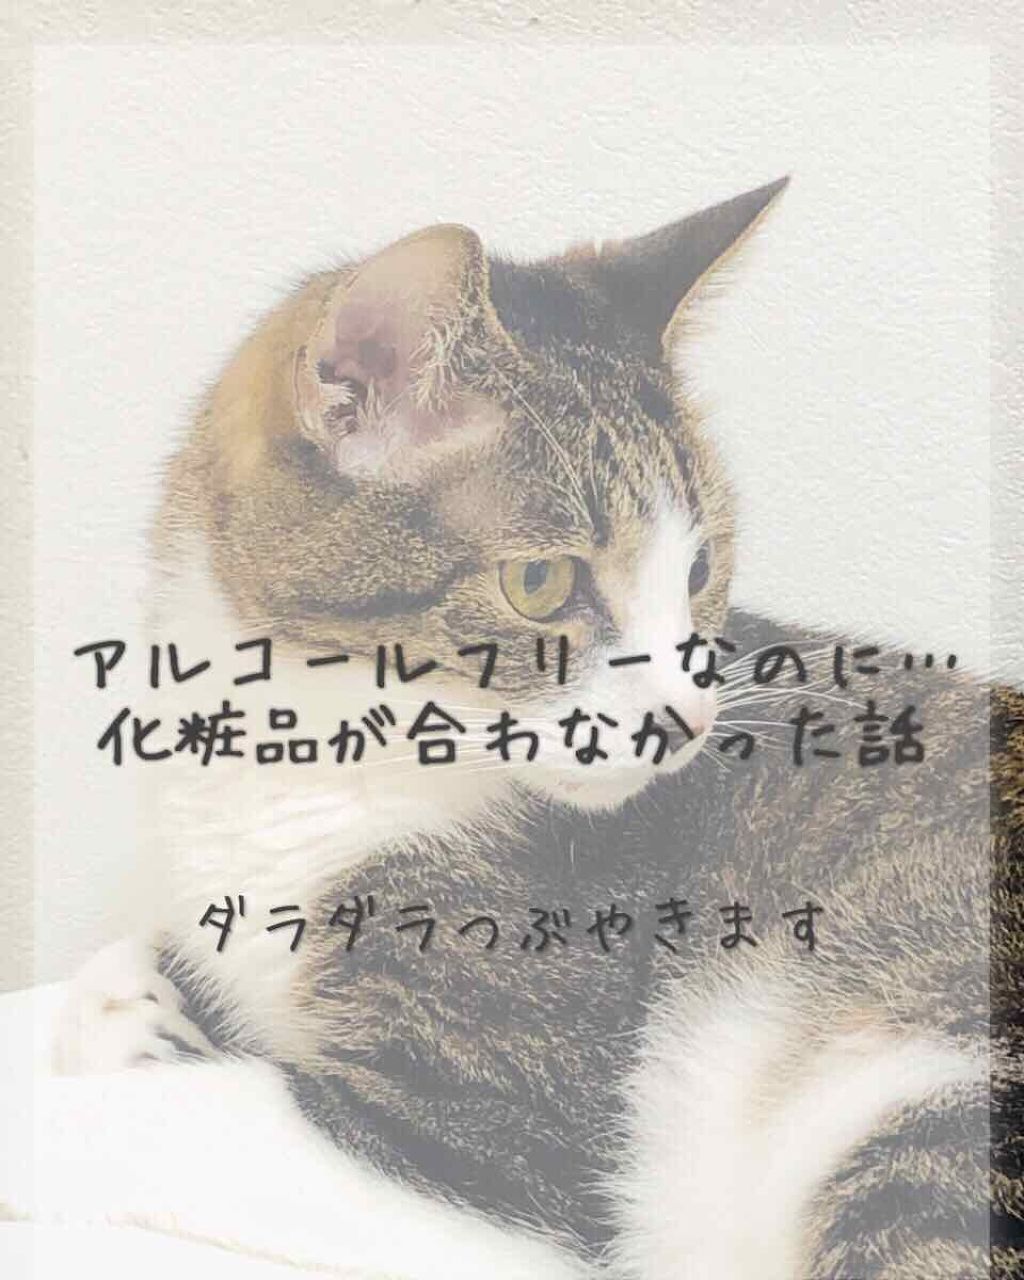 アルコールフリーなのに…
化粧品が合わなかった話
ダラダラつぶやきます